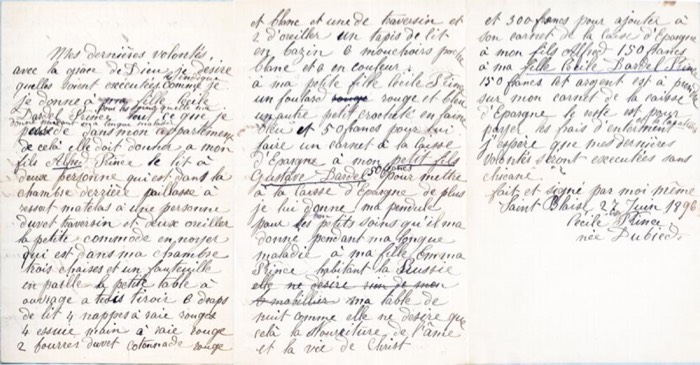 Mes dernières volontés
avec la grâce de Dieu je désire
quelles soient executées comme je
le désigne
je donne à ma fille Cécile
Bardel Prince tout ce que je
pour les bons soins quelle ma
donné pendant ma longue maladie
possede dans mon appartement
de cela elle doit donner a mon
fils Alfred Prince le lit à
deux personne qui est dans la
chambre derrière paillasse à
ressort matelas à une personne
duvet traversin et deux oreiller
la petite commode en noyer
qui est dans ma chambre
trois chaises et un fauteuil
en paille la petite table à
ouvrage a trois tiroir 6 draps
de lit 4 nappes à raie rouges
4 essuie main à raie rouge
2 fourres duvet cotonnade rouge
et blanc et une de traversin et
2 d'oreiller un tapis de lit
en bazin 6 mouchoirs poche
blanc et 6 en couleur.
à ma petite fille Cécile Prince
un foulard rouge rouge et bleu
un autre petit crocheté en laine
bleu et 50 francs pour lui
faire un carnet à la caisse
d'Epargne à mon petit fils
Gustave Bardel 50 francs pour mettre
à la caisse d'Epargne de plus
je lui donne ma pendule
pour les bons petits soins qu'il m'a
donné pendant ma longue
maladie à ma fille Emma
Prince habitant la Russie
elle ne désire rien de mon
mobillier ma table de
nuit comme elle ne désire que
celà la Nourriture de l'âme
et la vie de Christ
et 300 francs pour ajouter à
son carnet de la caisse d'Epargne
à mon fils Alfred 150 francs
à ma fille Cécile Bardel Prince
150 francs cet argent est à prendre
sur mon carnet de la caisse
d'Epargne le reste est pour
payer les frais d'enterment
j'espère que mes dernières
volontés seront executées sans
chicane
fait et signé par moi même
Saint Blaise 27 Juin 1896
Cécile Prince
née Dubied